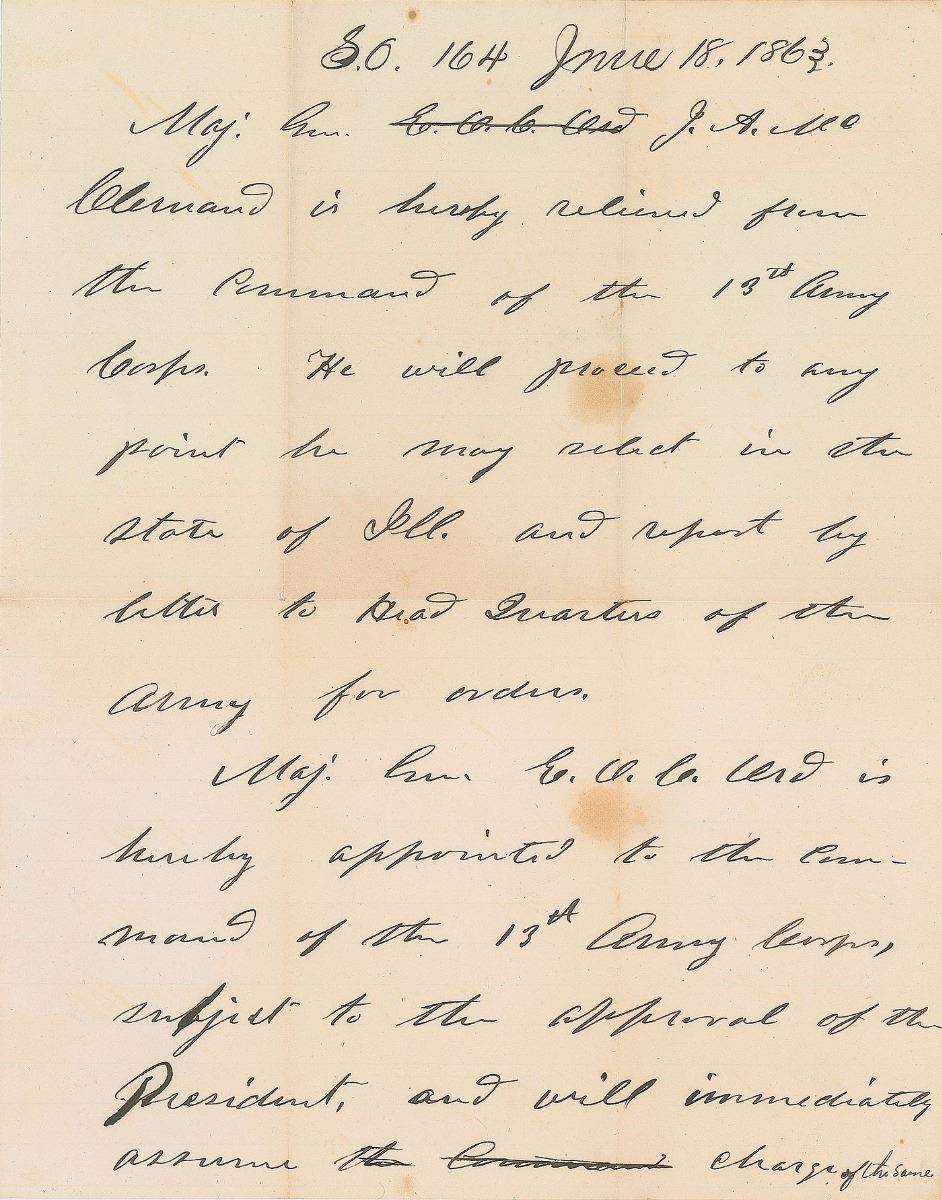 S.O. 164 June 18, 1863.
Maj. Gen. E. O. C. Ord J. A. Mc
Clernand is hereby relieved from
the command of the 13th Army
Corps. He will proceed to any
point he may select in the
state of Ill. and report by
letter to Head Quarters of the
Army for orders.
Maj. Gen. E. O. C. Ord is
hereby appointed to the com-
mand of the 13th Army Corps,
subject to the approval of the
President, and will immediately
assume the Command charge of the same